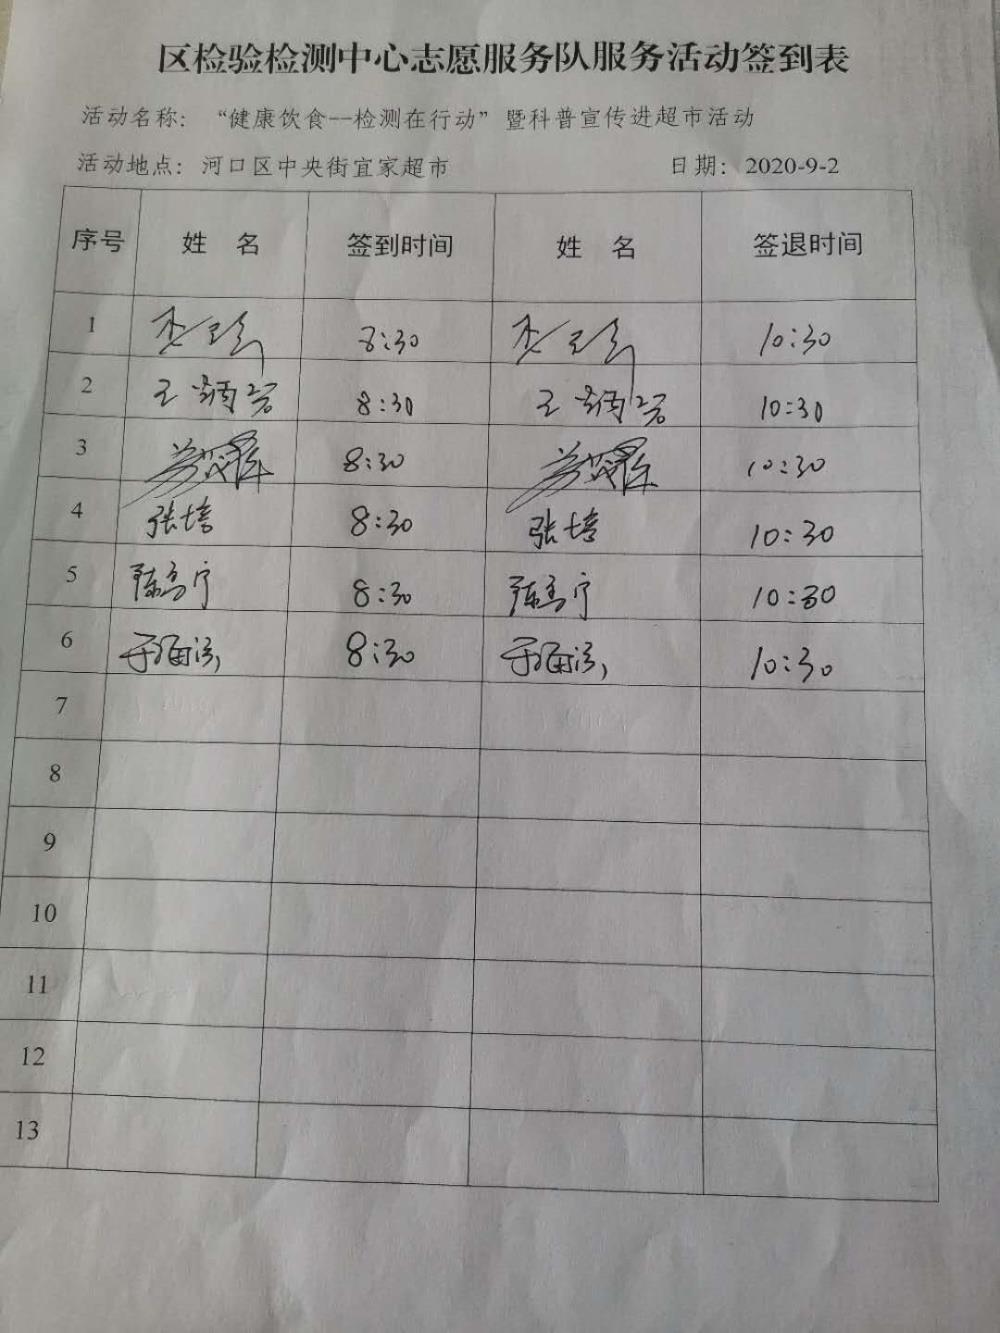 区检验检测中心志愿服务队服务活动签到表
活动名称：“健康饮食--检测在行动”暨科普宣传进超市活动
活动地点：河口区中央街宜家超市 日期：2020-9-2
序号 姓 名 签到时间 姓 名 签退时间
1 8:30 10:30
2 王 8:30 王 10:30
3 8:30 10:30
4 张培 8:30 张培 10:30
5 陈高宁 8:30 陈高宁 10:30
6 于海 8:30 于海 10:30
7
8
9
10
11
12
13